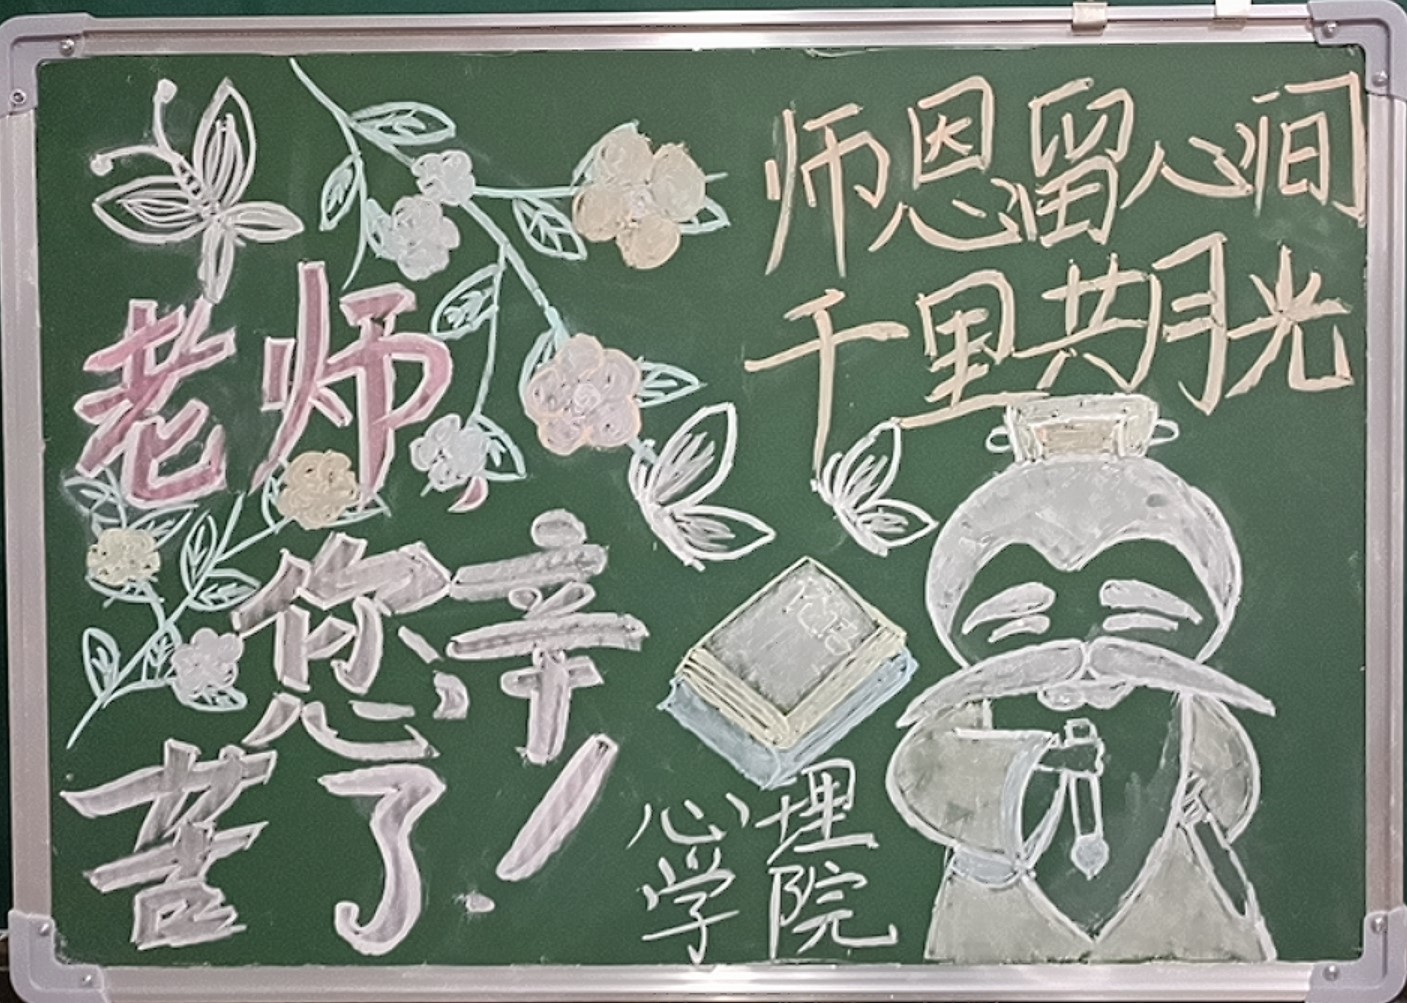 师恩留心间
千里共月光
老师,
您辛
苦了!
心理
学院